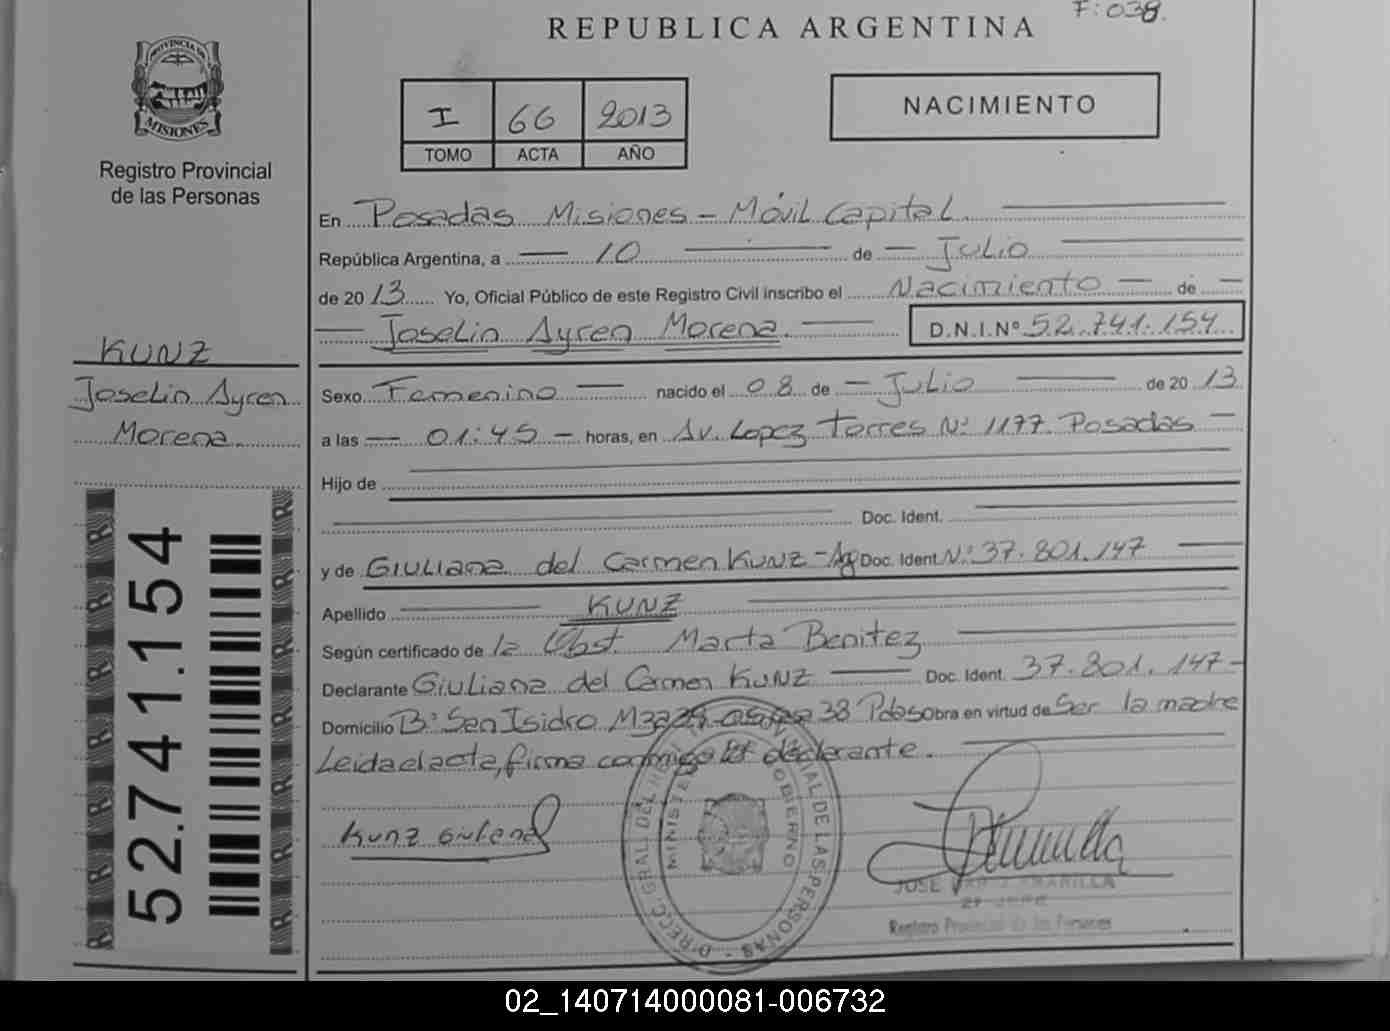 F: 038.
REPUBLICA ARGENTINA
PROVINCIA DE
MISIONES
Registro Provincial
de las Personas
I 66 2013
TOMO ACTA AÑO
NACIMIENTO
En Posadas Misiones - Móvil Capital.
República Argentina, a — 10 — de — Julio —
de 2013 Yo, Oficial Público de este Registro Civil inscribo el Nacimiento — de —
— Joselin Ayren Morena. — D.N.I.Nº 52.741.154
KUNZ
Joselin Ayren
Morena.
52.741.154
Sexo Femenino — nacido el 08 de — Julio — de 2013
a las — 01:45 — horas, en Av. Lopez Torres Nº 1177. Posadas —
Hijo de
Doc. Ident.
y de Giuliana del Carmen KUNZ - Ag Doc. Ident. Nº 37.801.147 —
Apellido — KUNZ —
Según certificado de la Obst. Marta Benitez —
Declarante Giuliana del Carmen KUNZ — Doc. Ident. 37.801.147-
Domicilio Bº San Isidro 38 Pdas Obra en virtud de Ser la madre
Leida el acta, firma conmigo declarante.
Kunz Giuliana
DIRECC. GRAL. DEL REG. PROVINCIAL DE LAS PERSONAS
MINISTERIO GOBIERNO
JOSE
Registro Provincial de las Personas
02_140714000081-006732